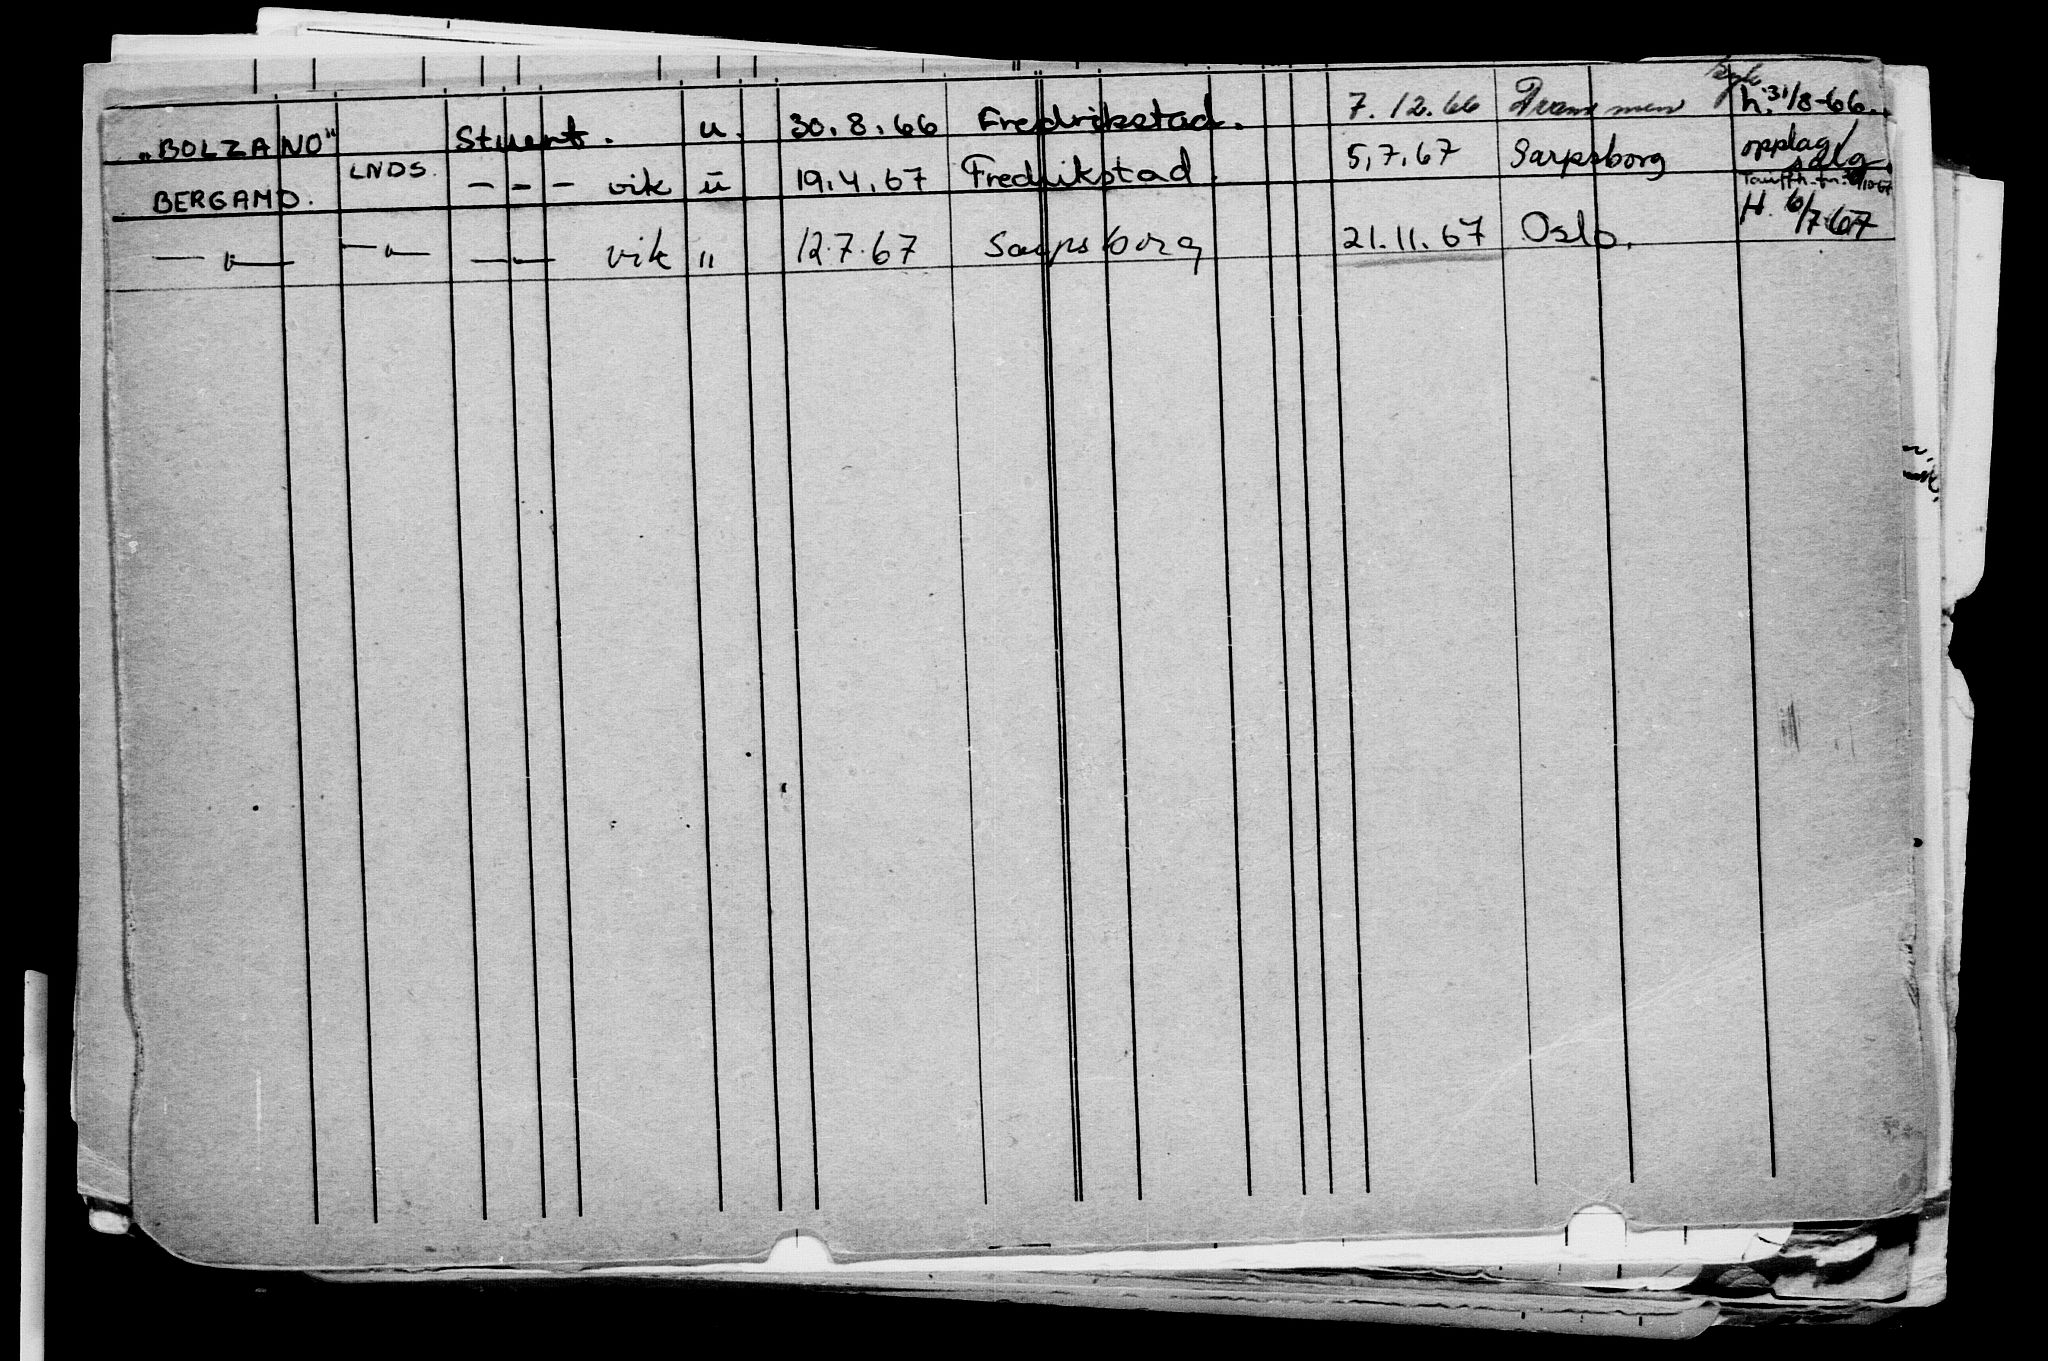 „BOLZANO" Stuert. u. 30.8.66 Fredrikstad. 7.12.66 Drammen h. 31/8-66.
BERGAMO. LNDS. — — — vik ū 19.4.67 Fredrikstad. 5,7,67 Sarpsborg opplag/ salg.
— " — — " — — " — vik " 12.7.67 Sarpsborg 21.11.67 Oslo. H. 6/7-67